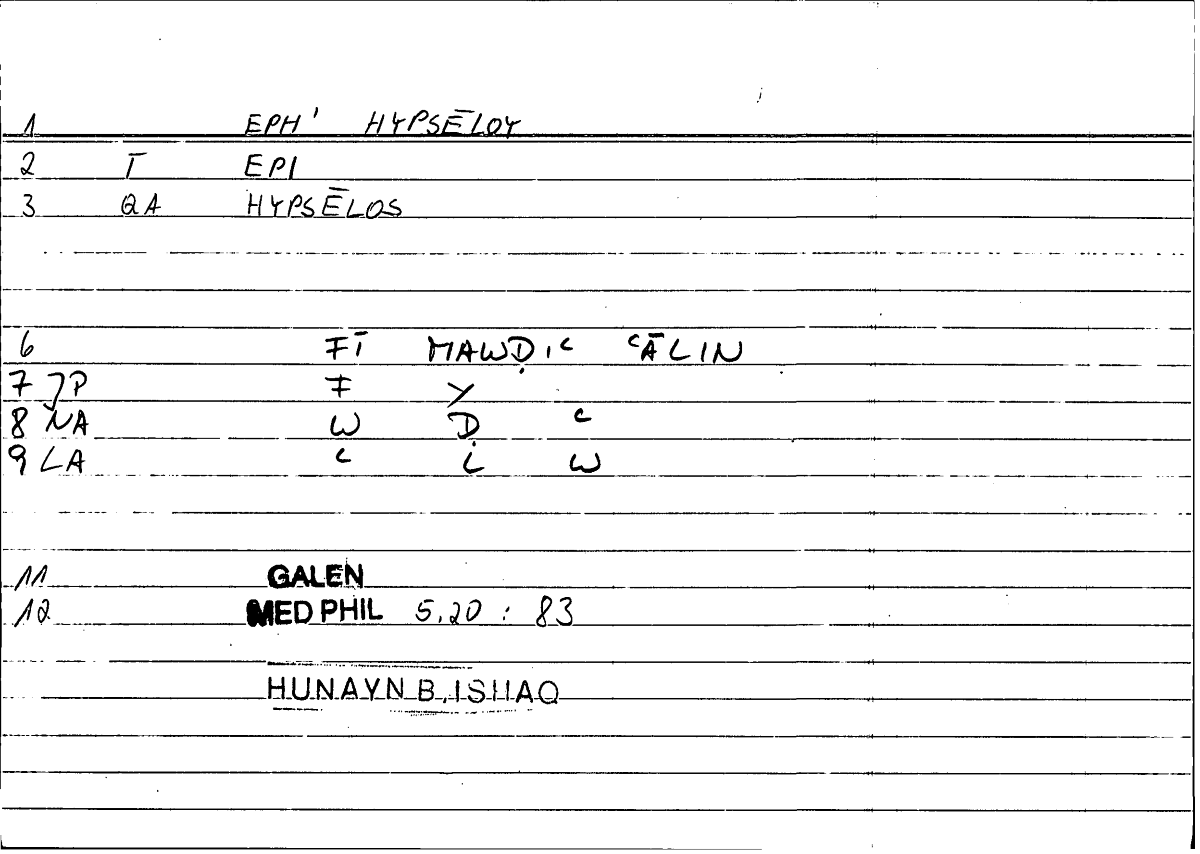 1 EPH' HYPSĒLOY
2 T EPI
3 QA HYPSĒLOS
6 FĪ MAWḌIʿ ʿĀLIN
7 JP F Y
8 NA W Ḍ ʿ
9 LA ʿ L W
11 GALEN
12 MED PHIL 5,20 : 83
HUNAYN B. ISHAQ